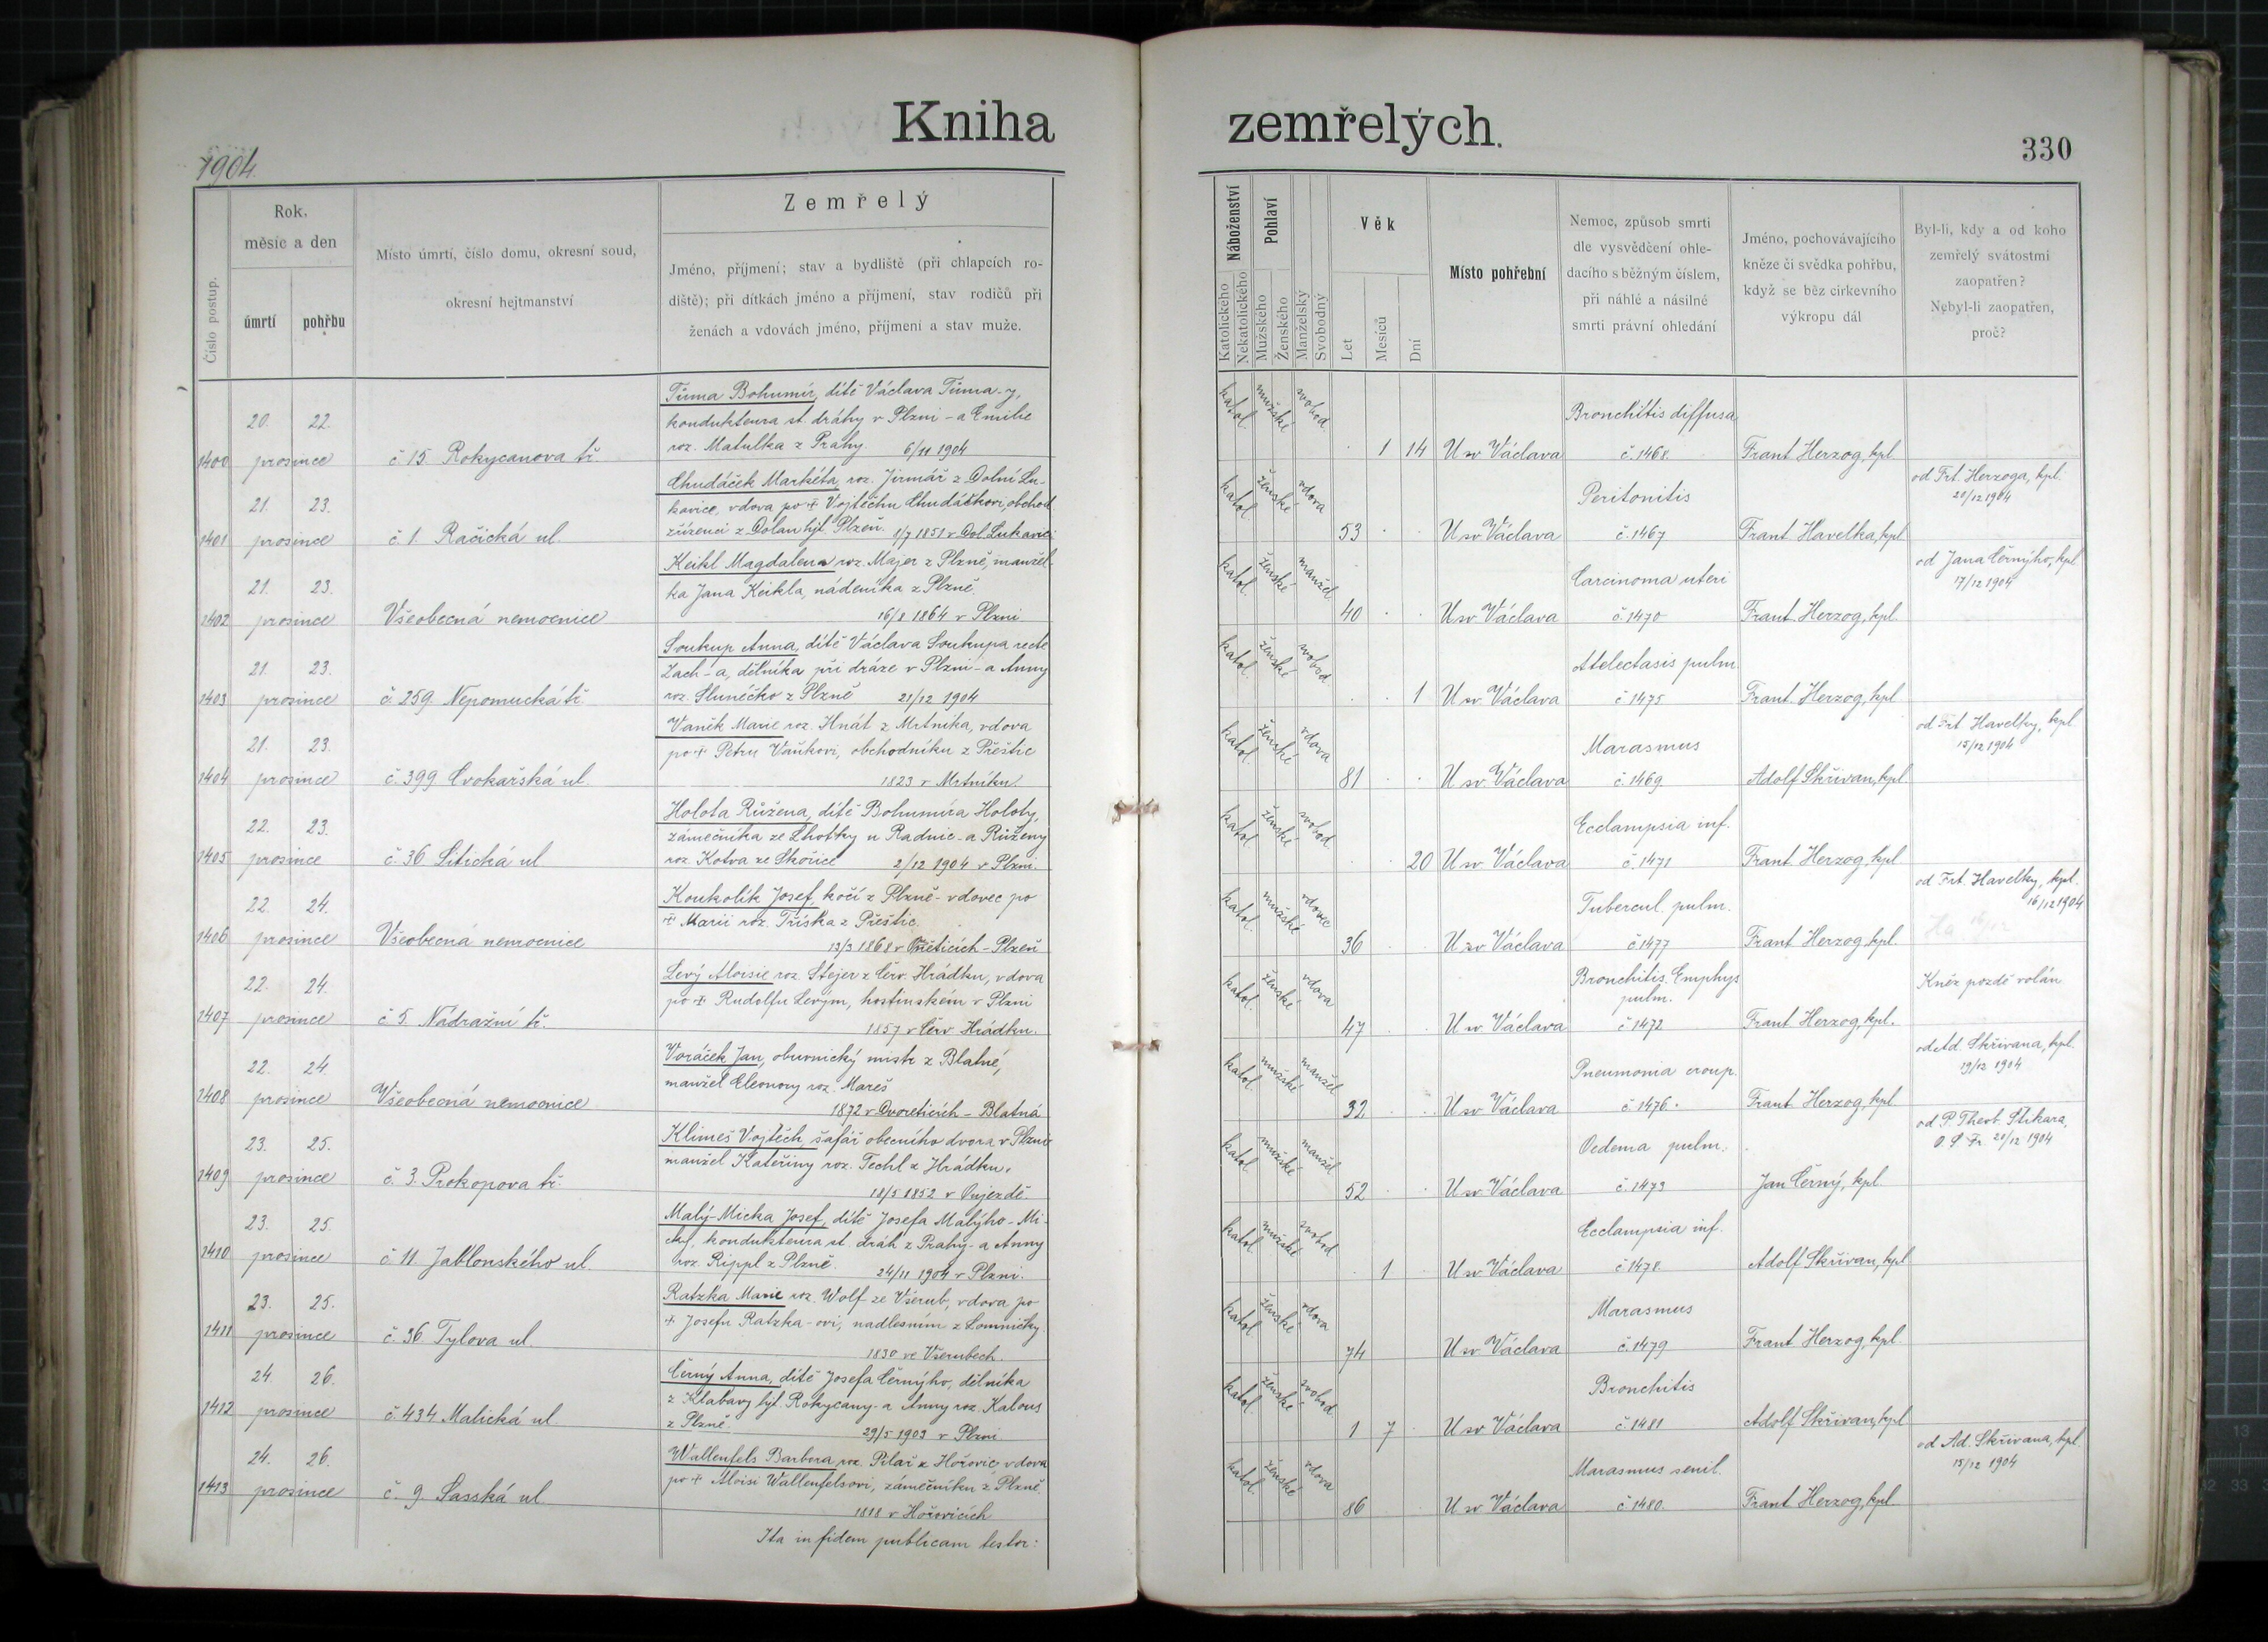 Kniha zemřelých.
330
1904.
Číslo postup.
Rok, měsíc a den
úmrtí
pohřbu
Místo úmrtí, číslo domu, okresní soud,
okresní hejtmanství
Zemřelý
Jméno, příjmení; stav a bydliště (při chlapcích ro-
diště); při dítkách jméno a příjmení, stav rodičů při
ženách a vdovách jméno, příjmení a stav muže.
Náboženství
Katolického
Nekatolického
Pohlaví
Mužského
Ženského
Manželský
Svobodný
Věk
Let
Měsíců
Dní
Místo pohřební
Nemoc, způsob smrti
dle vysvědčení ohle-
dacího s běžným číslem,
při náhlé a násilné
smrti právní ohledání
Jméno, pochovávajícího
kněze či svědka pohřbu,
když se bez cirkevního
výkropu dál
Byl-li, kdy a od koho
zemřelý svátostmi
zaopatřen?
Nebyl-li zaopatřen,
proč?
1400 20. 22. prosince č. 15. Rokycanova tř.
Tůma Bohumír, dítě Václava Tůma-y,
kondukteura st. dráhy v Plzni - a Emilie
roz. Matulka z Prahy. 6/11 1904
katol. mužské svobod. 1 14 U sv. Václava
Bronchitis diffusa
č. 1468. Frant. Herzog, kpl.
1401 21. 23. prosince č. 1. Račická ul.
Chudáček Markéta, roz. Jirmář z Dolní Lu-
kavice, vdova po + Vojtěchu Chudáčkovi, obchod.
zřízenci z Dolan hjt. Plzeň. 8/7 1851 v Dol. Lukavici
katol. ženské vdova 53 U sv. Václava
Peritonitis
č. 1467 Frant. Havelka, kpl.
od Frt. Herzoga, kpl.
20/12 1904
1402 21. 23. prosince Všeobecná nemocnice
Keikl Magdalena roz. Majer z Plzně, manžel-
ka Jana Keikla, nádeníka z Plzně.
16/8 1864 v Plzni
katol. ženské manžel. 40 U sv. Václava
Carcinoma uteri
č. 1470 Frant. Herzog, kpl.
od Jana Černýho, kpl.
17/12 1904
1403 21. 23. prosince č. 259. Nepomucká tř.
Soukup Anna, dítě Václava Soukupa recte
Zach-a, dělníka při dráze v Plzni - a Anny
roz. Slunéčko z Plzně 21/12 1904
katol. ženské svobod. 1 U sv. Václava
Atelectasis pulm.
č. 1475 Frant. Herzog, kpl.
1404 21. 23. prosince č. 399 Cvokařská ul.
Vaněk Marie roz. Hnát z Mrtníka, vdova
po + Petru Vaňkovi, obchodníku z Přeštic
1823 v Mrtníku.
katol. ženské vdova 81 U sv. Václava
Marasmus
č. 1469. Adolf Skřivan, kpl.
od Frt. Havelky, kpl.
15/12 1904
1405 22. 23. prosince č. 36 Sitická ul
Holota Růžena, dítě Bohumíra Holoty,
zámečníka ze Lhotky u Radnic - a Růženy
roz. Kotva ze Skořice 2/12 1904 v Plzni.
katol. ženské svobod. 20 U sv. Václava
Ecclampsia inf.
č. 1471 Frant. Herzog, kpl
1406 22. 24. prosince Všeobecná nemocnice
Koukolík Josef, kočí z Plzně - vdovec po
+ Marii roz. Tříska z Přeštic.
13/3 1868 v - Plzeň
katol. mužské vdovec 36 U sv. Václava
Tubercul. pulm.
č. 1477 Frant. Herzog, kpl.
od Frt. Havelky, kpl.
16/12 1904
1407 22. 24. prosince č. 5. Nádražní tř.
Levý Aloisie roz. Stejer z Červ. Hrádku, vdova
po + Rudolfu Levým, hostinském v Plzni
1857 v Červ. Hrádku.
katol. ženské vdova 47 U sv. Václava
Bronchitis. Emphys
pulm.
č. 1472 Frant. Herzog, kpl.
Kněz pozdě volán
1408 22. 24. prosince Všeobecná nemocnice
Voráček Jan, obuvnický mistr z Blatné,
manžel Eleonory roz. Mareš
1872 v Dvoreticích - Blatná
katol. mužské manžel 32 U sv. Václava
Pneumonia croup.
č. 1476. Frant. Herzog, kpl.
od Ad. Skřivana, kpl.
19/12 1904
1409 23. 25. prosince č. 3. Prokopova tř.
Klimeš Vojtěch, šafář obecního dvora v Plzni
manžel Kateřiny roz. Techl z Hrádku.
18/5 1852 v Oujezdě.
katol. mužské manžel 52 U sv. Václava
Oedema pulm.
č. 1473 Jan Černý, kpl.
od P. Theob. Stikara,
O. S. Fr. 20/12 1904
1410 23. 25. prosince č. 11. Jablonského ul.
Malý-Micka Josef, dítě Josefa Malýho-Mi-
cky, kondukteura st. dráh z Prahy - a Anny
roz. Rippl z Plzně. 24/11 1904 v Plzni.
katol. mužské svobod. 1 U sv. Václava
Ecclampsia inf.
č. 1478 Adolf Skřivan, kpl.
1411 23. 25. prosince č. 36 Tylova ul.
Ratzka Marie roz. Wolf ze Všerub, vdova po
+ Josefu Ratzka-ovi, nadlesním z Lomničky.
1830 ve Všerubech.
katol. ženské vdova 74 U sv. Václava
Marasmus
č. 1479 Frant. Herzog, kpl.
1412 24. 26. prosince č. 434 Malická ul
Černý Anna, dítě Josefa Černýho, dělníka
z Klabavy hjt. Rokycany - a Anny roz. Kalous
z Plzně. 29/5 1903 v Plzni
katol. ženské svobod. 1 7 U sv. Václava
Bronchitis
č. 1481 Adolf Skřivan, kpl
1413 24. 26. prosince č. 9. Sasská ul
Wallenfels Barbora roz. Pilař z Hořovic vdova
po + Aloisi Wallenfelsovi, zámečníku z Plzně.
1818 v Hořovicích
katol. ženské vdova 86 U sv. Václava
Marasmus senil.
č. 1480. Frant. Herzog, kpl.
od Ad. Skřivana, kpl.
15/12 1904
Ita in fidem publicam testor: